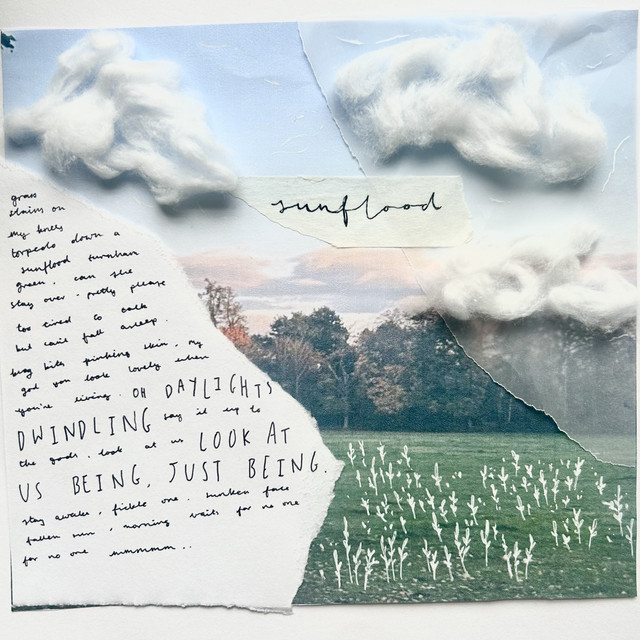 sunflood
grass
stains on
my knees
torpedo down a
sunflood turnham
green. can she
stay over. pretty please
too tired to talk
but can't fall asleep.
bug bites pinking skin, my
god you look lovely when
you're living. OH DAYLIGHTS
DWINDLING say it up to
the gods. look at us LOOK AT
US BEING, JUST BEING.
stay awake, fickle one. sunken face
fallen sun, morning waits for no one
for no one mmmmm..